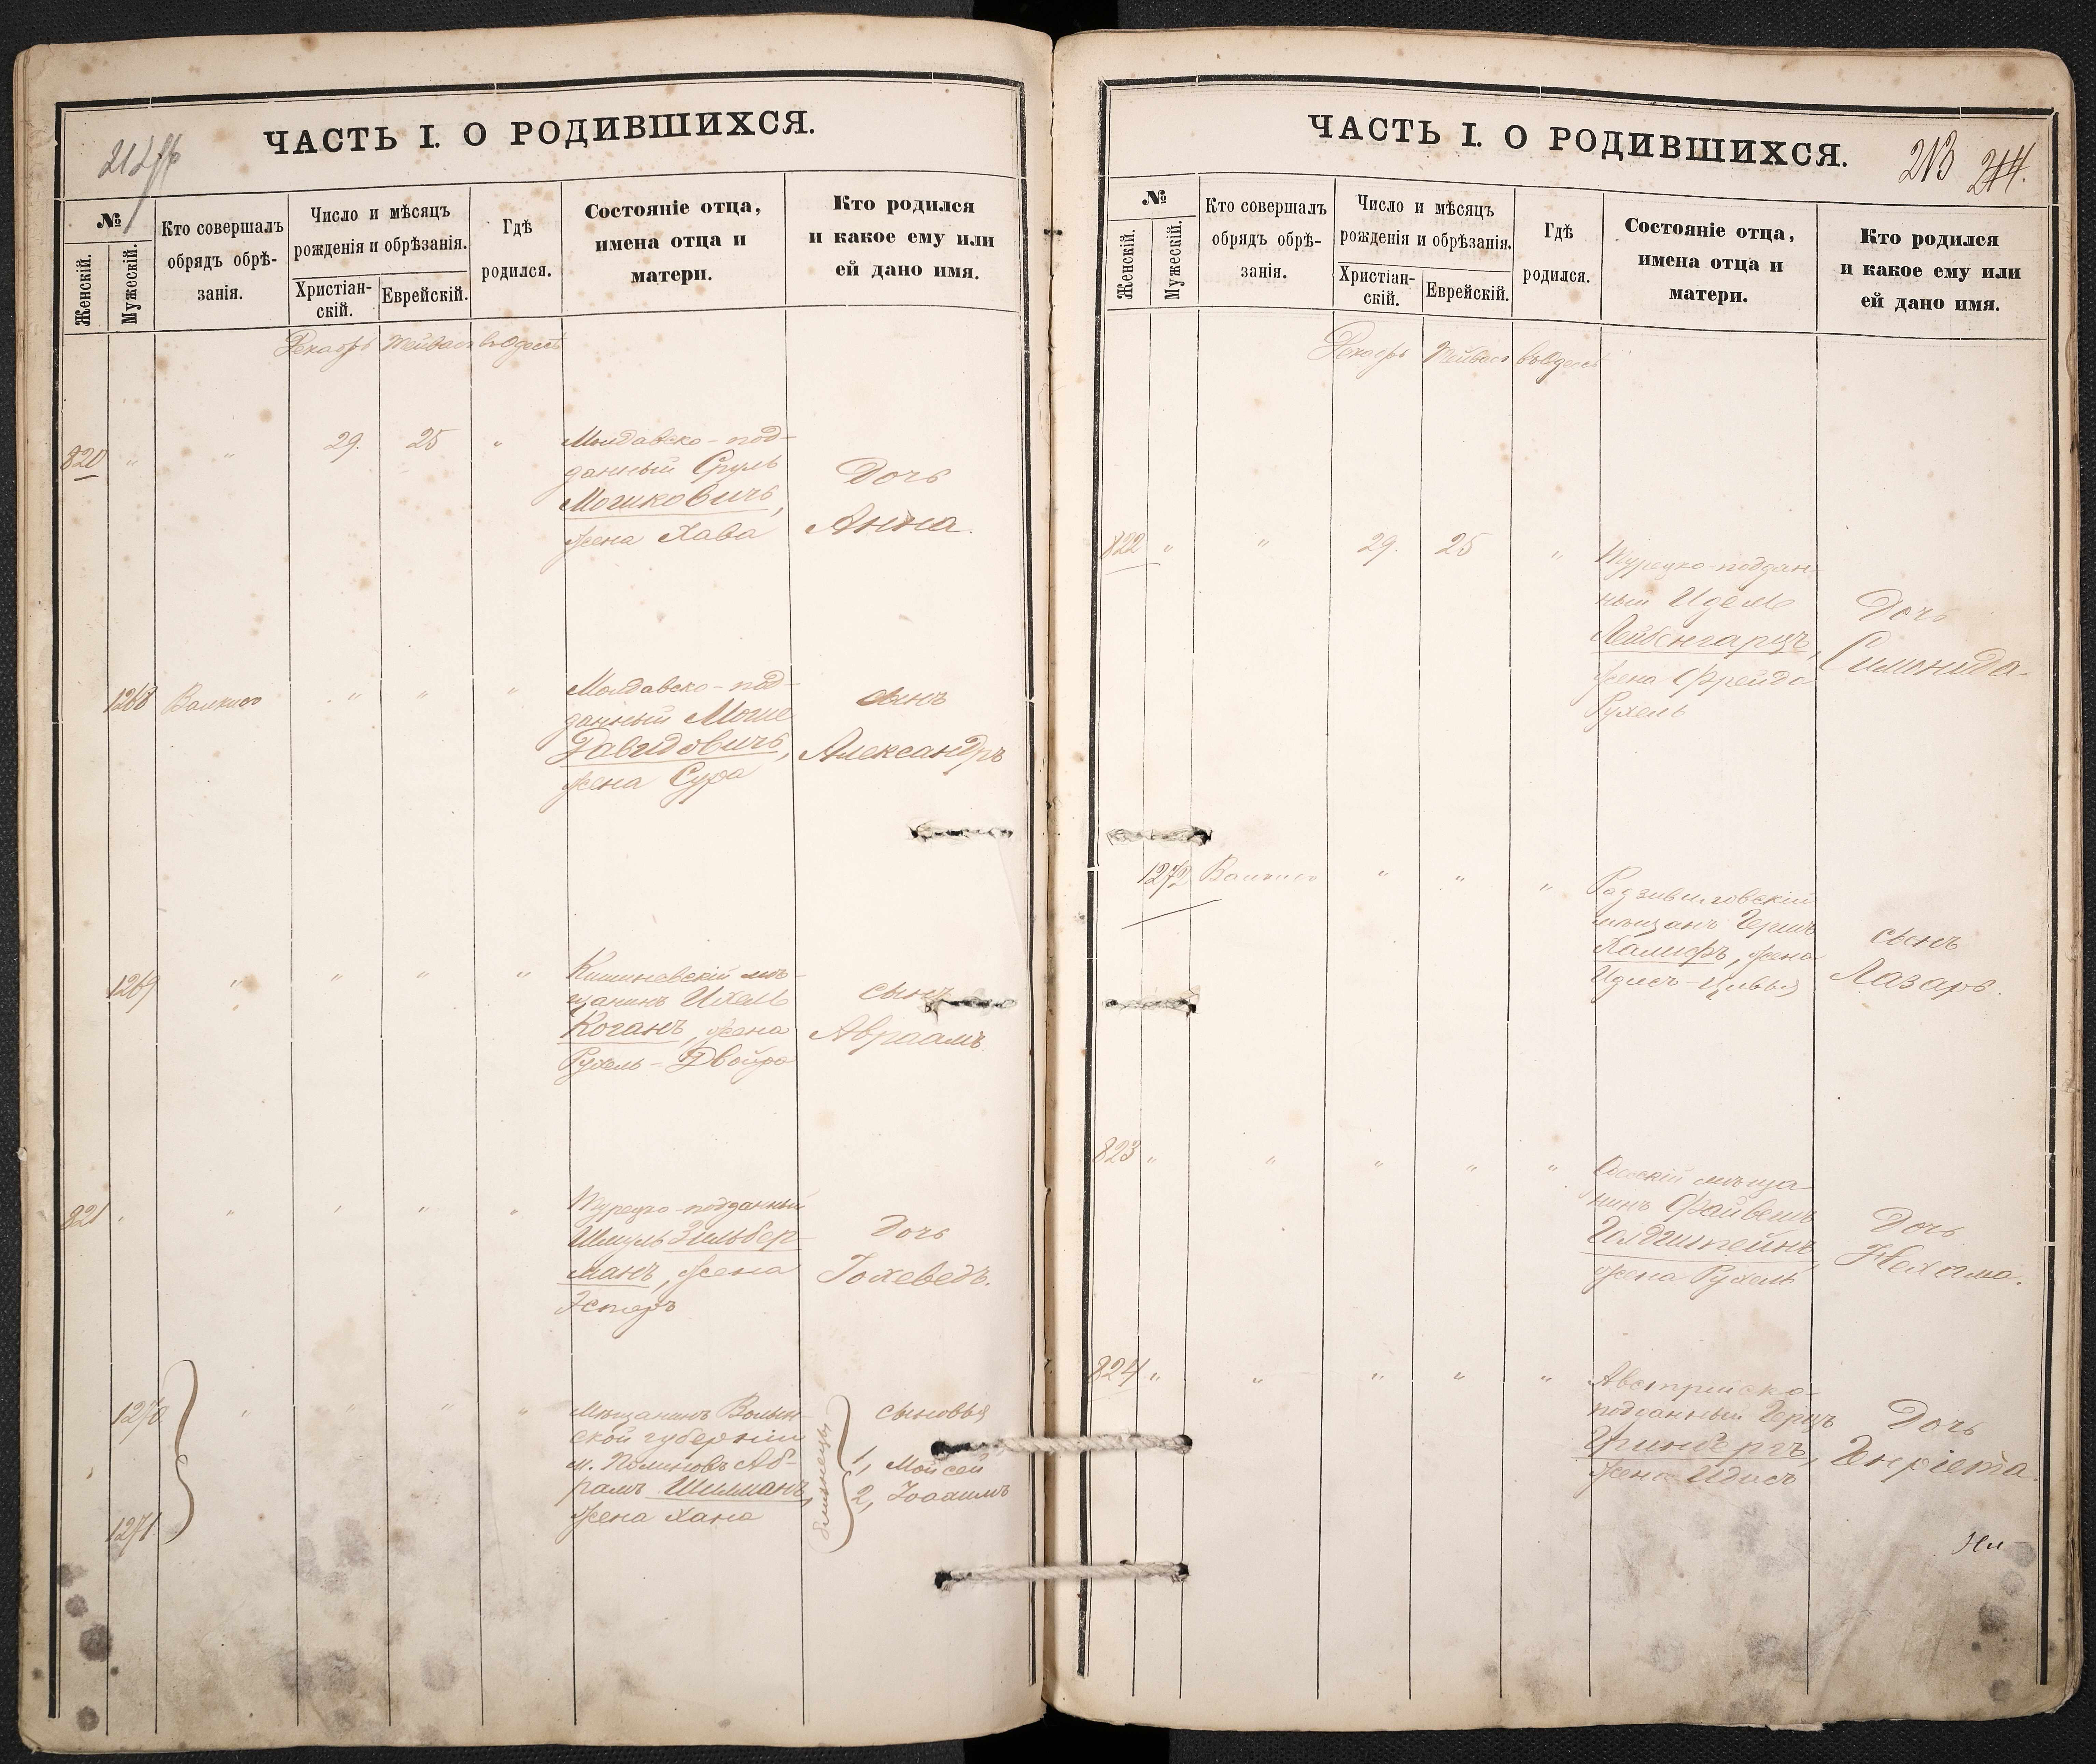 ЧАСТЬ I. О РОДИВШИХСЯ.
№
Женскій.
Мужескій.
Кто совершалъ
обрядъ обрѣ-
занія.
Число и мѣсяцъ
рожденія и обрѣзанія.
Христіан-
скій.
Еврейскій.
Гдѣ
родился.
Состояніе отца,
имена отца и
матери.
Кто родился
и какое ему или
ей дано имя.
Декабрь Тейвасъ въ Одессѣ
820 " " 29. 25 "
Молдавско-под-
данный Сруль
Мошковичъ,
жена Хава
Дочь
Анна.
1268 " " "
Молдавско-под-
данный Мошѣ
Давидовичъ,
жена Сура
сынъ
Александръ
1269 " " " "
Кишиневскій мѣ-
щанинъ Ихель
Коганъ, жена
Рухель-Двойра
сынъ
Авраамъ
821 " " " " "
Турецко-подданный
Шмуль Зильбер-
манъ, жена
Эстеръ
Дочь
Іохеведъ.
1270
1271
" " " "
Мѣщанинъ Волын-
ской губерніи
м. Аб-
рамъ Шильманъ,
жена Хана
близнецы
сыновья
1, Мойсей
2, Іоахимъ
ЧАСТЬ I. О РОДИВШИХСЯ.
213 214.
№
Женскій.
Мужескій.
Кто совершалъ
обрядъ обрѣ-
занія.
Число и мѣсяцъ
рожденія и обрѣзанія.
Христіан-
скій.
Еврейскій.
Гдѣ
родился.
Состояніе отца,
имена отца и
матери.
Кто родился
и какое ему или
ей дано имя.
Декабрь Тейвасъ въ Одессѣ
822 " " 29. 25 "
Турецко-поддан-
ный Идель
Лейбенгарцъ,
жена Фрейда
Рухель
Дочь
Симонида.
1272 " " "
Радзивиловскій
мѣщанъ Гершъ
Халифъ, жена
Идесъ-Цивья
сынъ
Лазарь.
823 " " " " "
мѣща-
нинъ Файвешъ
Голдштейнъ,
жена Рухель
Дочь
Нехама.
824 " " " " "
Австрійско-
подданный Герцъ
Гринбергъ,
жена Идесъ
Дочь
Генріета.